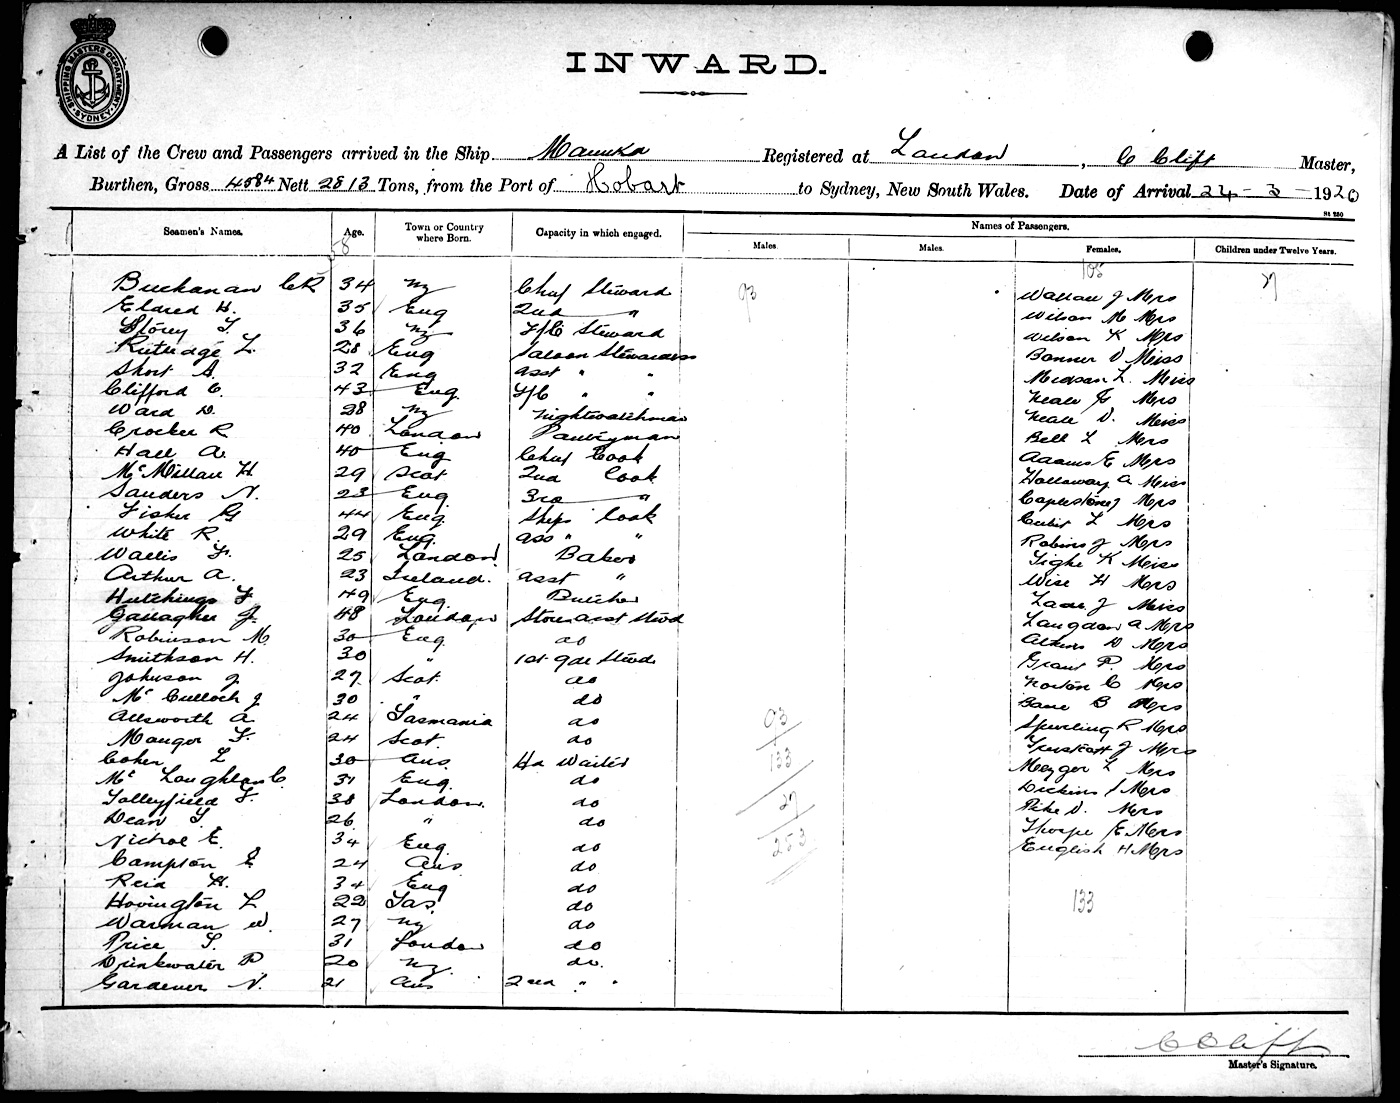 SHIPPING MASTERS DEPARTMENT
SYDNEY
INWARD.
A List of the Crew and Passengers arrived in the Ship Manuka Registered at London, C Clift Master,
Burthen, Gross 4584 Nett 2813 Tons, from the Port of Hobart to Sydney, New South Wales. Date of Arrival 24-3-1920
St 230
Seamen's Names. Age. Town or Country where Born. Capacity in which engaged. Names of Passengers.
Males. Males. Females. Children under Twelve Years.
58
93 105 27
Buchanan CR 34 NZ Chief Steward Wallace J Mrs
Eldred H. 35 Eng 2nd " Wilson M Mrs
Storey T. 36 NZ F/C Steward Wilson K Mrs
Rutledge L. 28 Eng Saloon Stewardess Bonner D Miss
Short A. 32 Eng asst " " L. Miss
Clifford C. 43 Eng. F/C " " Neale Mrs
Ward D. 28 NZ Nightwatchman Neale D. Miss
Crocker R 40 London Pantryman Bell L Mrs
Hall A. 40 Eng Chief Cook Adams E Mrs
McMillan H 29 Scot 2nd Cook Holloway A Miss
Sanders N. 23 Eng 3rd " Capelstone J Mrs
Fisher G 44 Eng. Ships Cook L Mrs
White R. 29 Eng. ass " " Robins J Mrs
Wallis F. 25 London Baker Tighe K Miss
Arthur A. 23 Ireland. asst " Wise H Mrs
Hutchings F 49 Eng Butcher J Miss
Gallagher J. 48 London Stores asst Stwd Langdon A Mrs
Robinson M 30 Eng. do D Mrs
Smithson H. 30 " 1st gde Stwd Grant P. Mrs
Johnson J. 27 Scot. do Norton C Mrs
McCulloch J 30 " do B Mrs
Allsworth A 24 Tasmania do Spurling R Mrs
Manger F. 24 Scot. do Truskott J Mrs
Coker L 30 Aus. Hd Waiter L Mrs
McLoughlan C. 31 Eng. do Dickins J Mrs
Tolleyfield F. 30 London. do Pike D. Mrs
Dean T. 26 " do Thorpe E Mrs
Nichol E. 34 Eng. do English H Mrs
Campton E 24 Aus do
Reid H. 34 Eng do
Hovington L 22 Tas. do 133
Warman W. 27 NZ do
Price T. 31 London do
Drinkwater P 20 NZ. do.
Gardener N. 21 Aus 2nd " "
93
133
27
253
C Clift
Master's Signature.